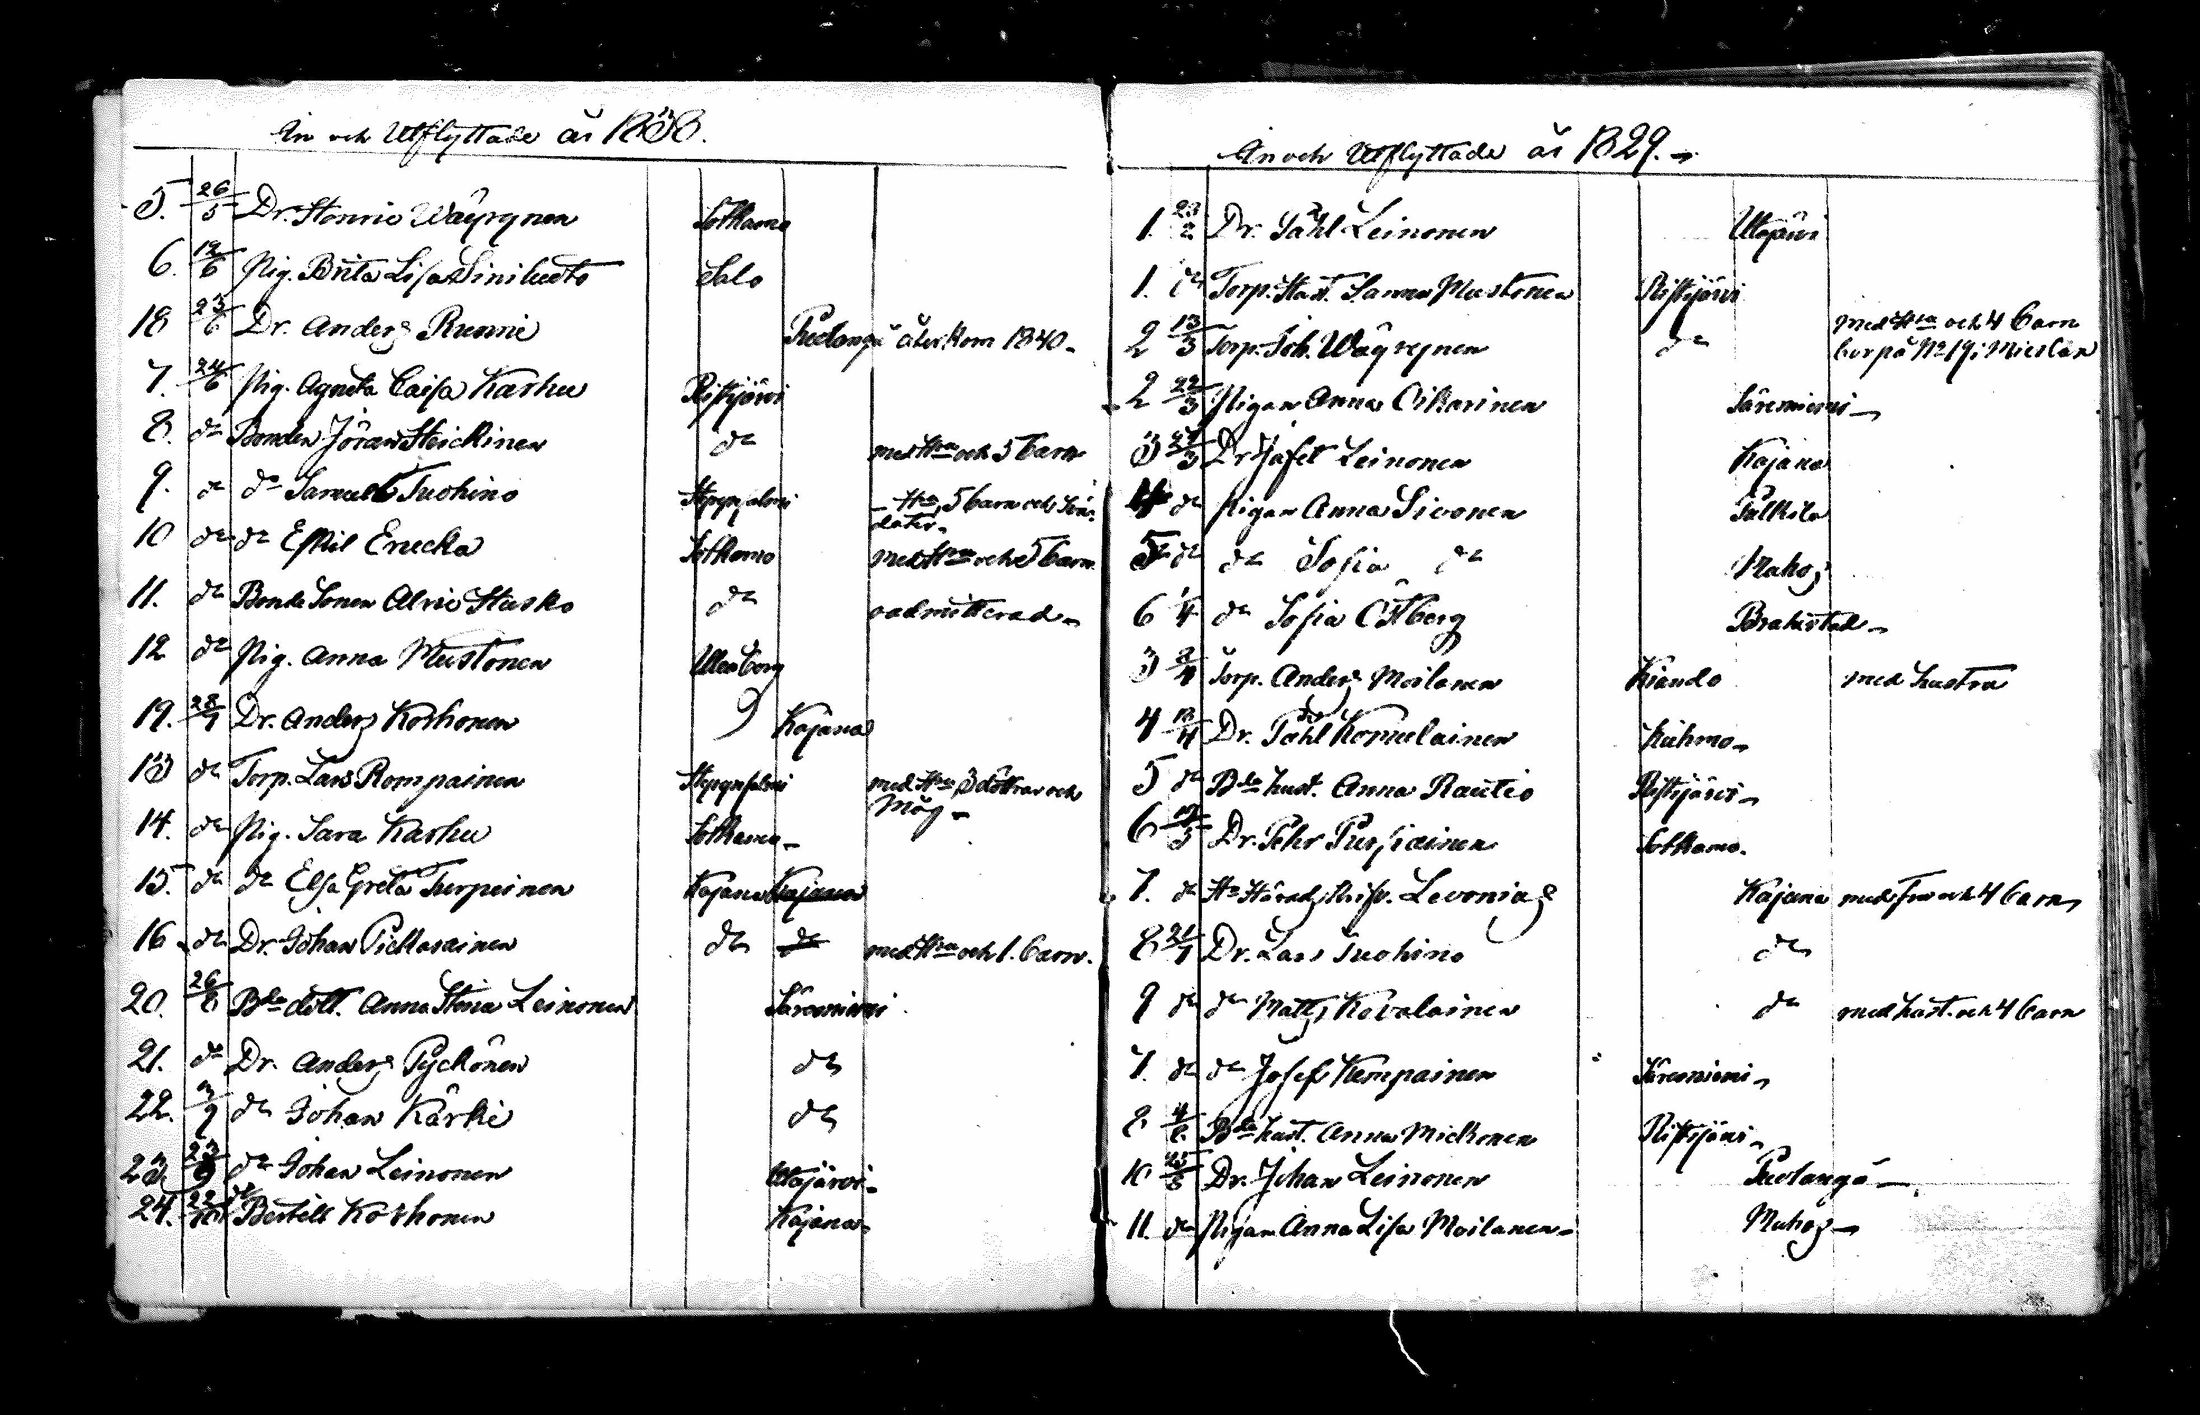 In och Utflyttade år 1838.
5. 26/5 Dr. Henric Wäyrynen Sotkamo
6. 12/6 Pig. Brita Lisa Siniluoto Salo
18 23/6 Dr. Anders Runni Puolango återkom 1840
7. 24/6 Pig. Agneta Caisa Karhu Ristijärvi
8. do Bonden Jöran Heickinen do med Hu och 5 barn
9. do do Samuel Tuohino Hyrynsalmi Hu, 5 barn och
dotr.
10 do do Eskil Erucka Sotkamo med Hu och 5 barn
11. do Bonde Sonen Alric Husko do oadmitterad
12 do Pig. Anna Mustonen Uleåborg
19. 28/7 Dr. Anders Korhonen Kajana
13 do Torp. Lars Rompainen Hyrynsalmi med Hu 3 döttrar och
Måg
14. do Pig. Sara Karhu Sotkamo
15. do do Elsa Greta Turpeinen Kajana Kajana
16 do Dr. Johan Pickarainen do do med Hu och 1. barn.
20. 26/8 Bde dott. Anna Stina Leinonen Säresniemi
21. do Dr. Anders Pyckönen do
22. 3/9 do Johan Kärki do
23 23/9 do Johan Leinonen Utajärvi
24. 22/10 do Bertell Korhonen Kajana
In och Utflyttade år 1829.
1. 23/2 Dr. Påhl Leinonen Utajärvi
1. do Torp. Hust. Sanna Mustonen Ristijärvi
2 13/3 Torp. Joh. Wäyrynen do med Hu och 4 barn
bor på No 19 i Mieslax
2 22/3 Pigan Anna Oikarinen Säresniemi
3 27/3 Dr. Jafet Leinonen Kajana
4 do Pigan Anna Sivonen Pulkila
5 do do Sofia do
6 1/4 do Sofia Östberg Brahestad
3 2/4 Torp. Anders Moilanen Kiando med hustru
4 13/4 Dr. Påhl Komulainen Kuhmo
5 do Bde hust. Anna Rautio Ristijärvi
6 19/5 Dr. Pehr Pursiainen Sotkamo.
7. do Hr Häradsskrifv. Levonius Kajana med Fru och 4 barn
8 21/7 Dr. Lars Tuohino do
9 do do Matts Kovalainen do med hust. och 4 barn
7. do do Josef Kempainen Säresniemi
8 4/8 Bde hust. Anna Mickonen Ristijärvi
10 25/8 Dr. Johan Leinonen Puolango
11. do Pigan Anna Lisa Moilanen Muhos